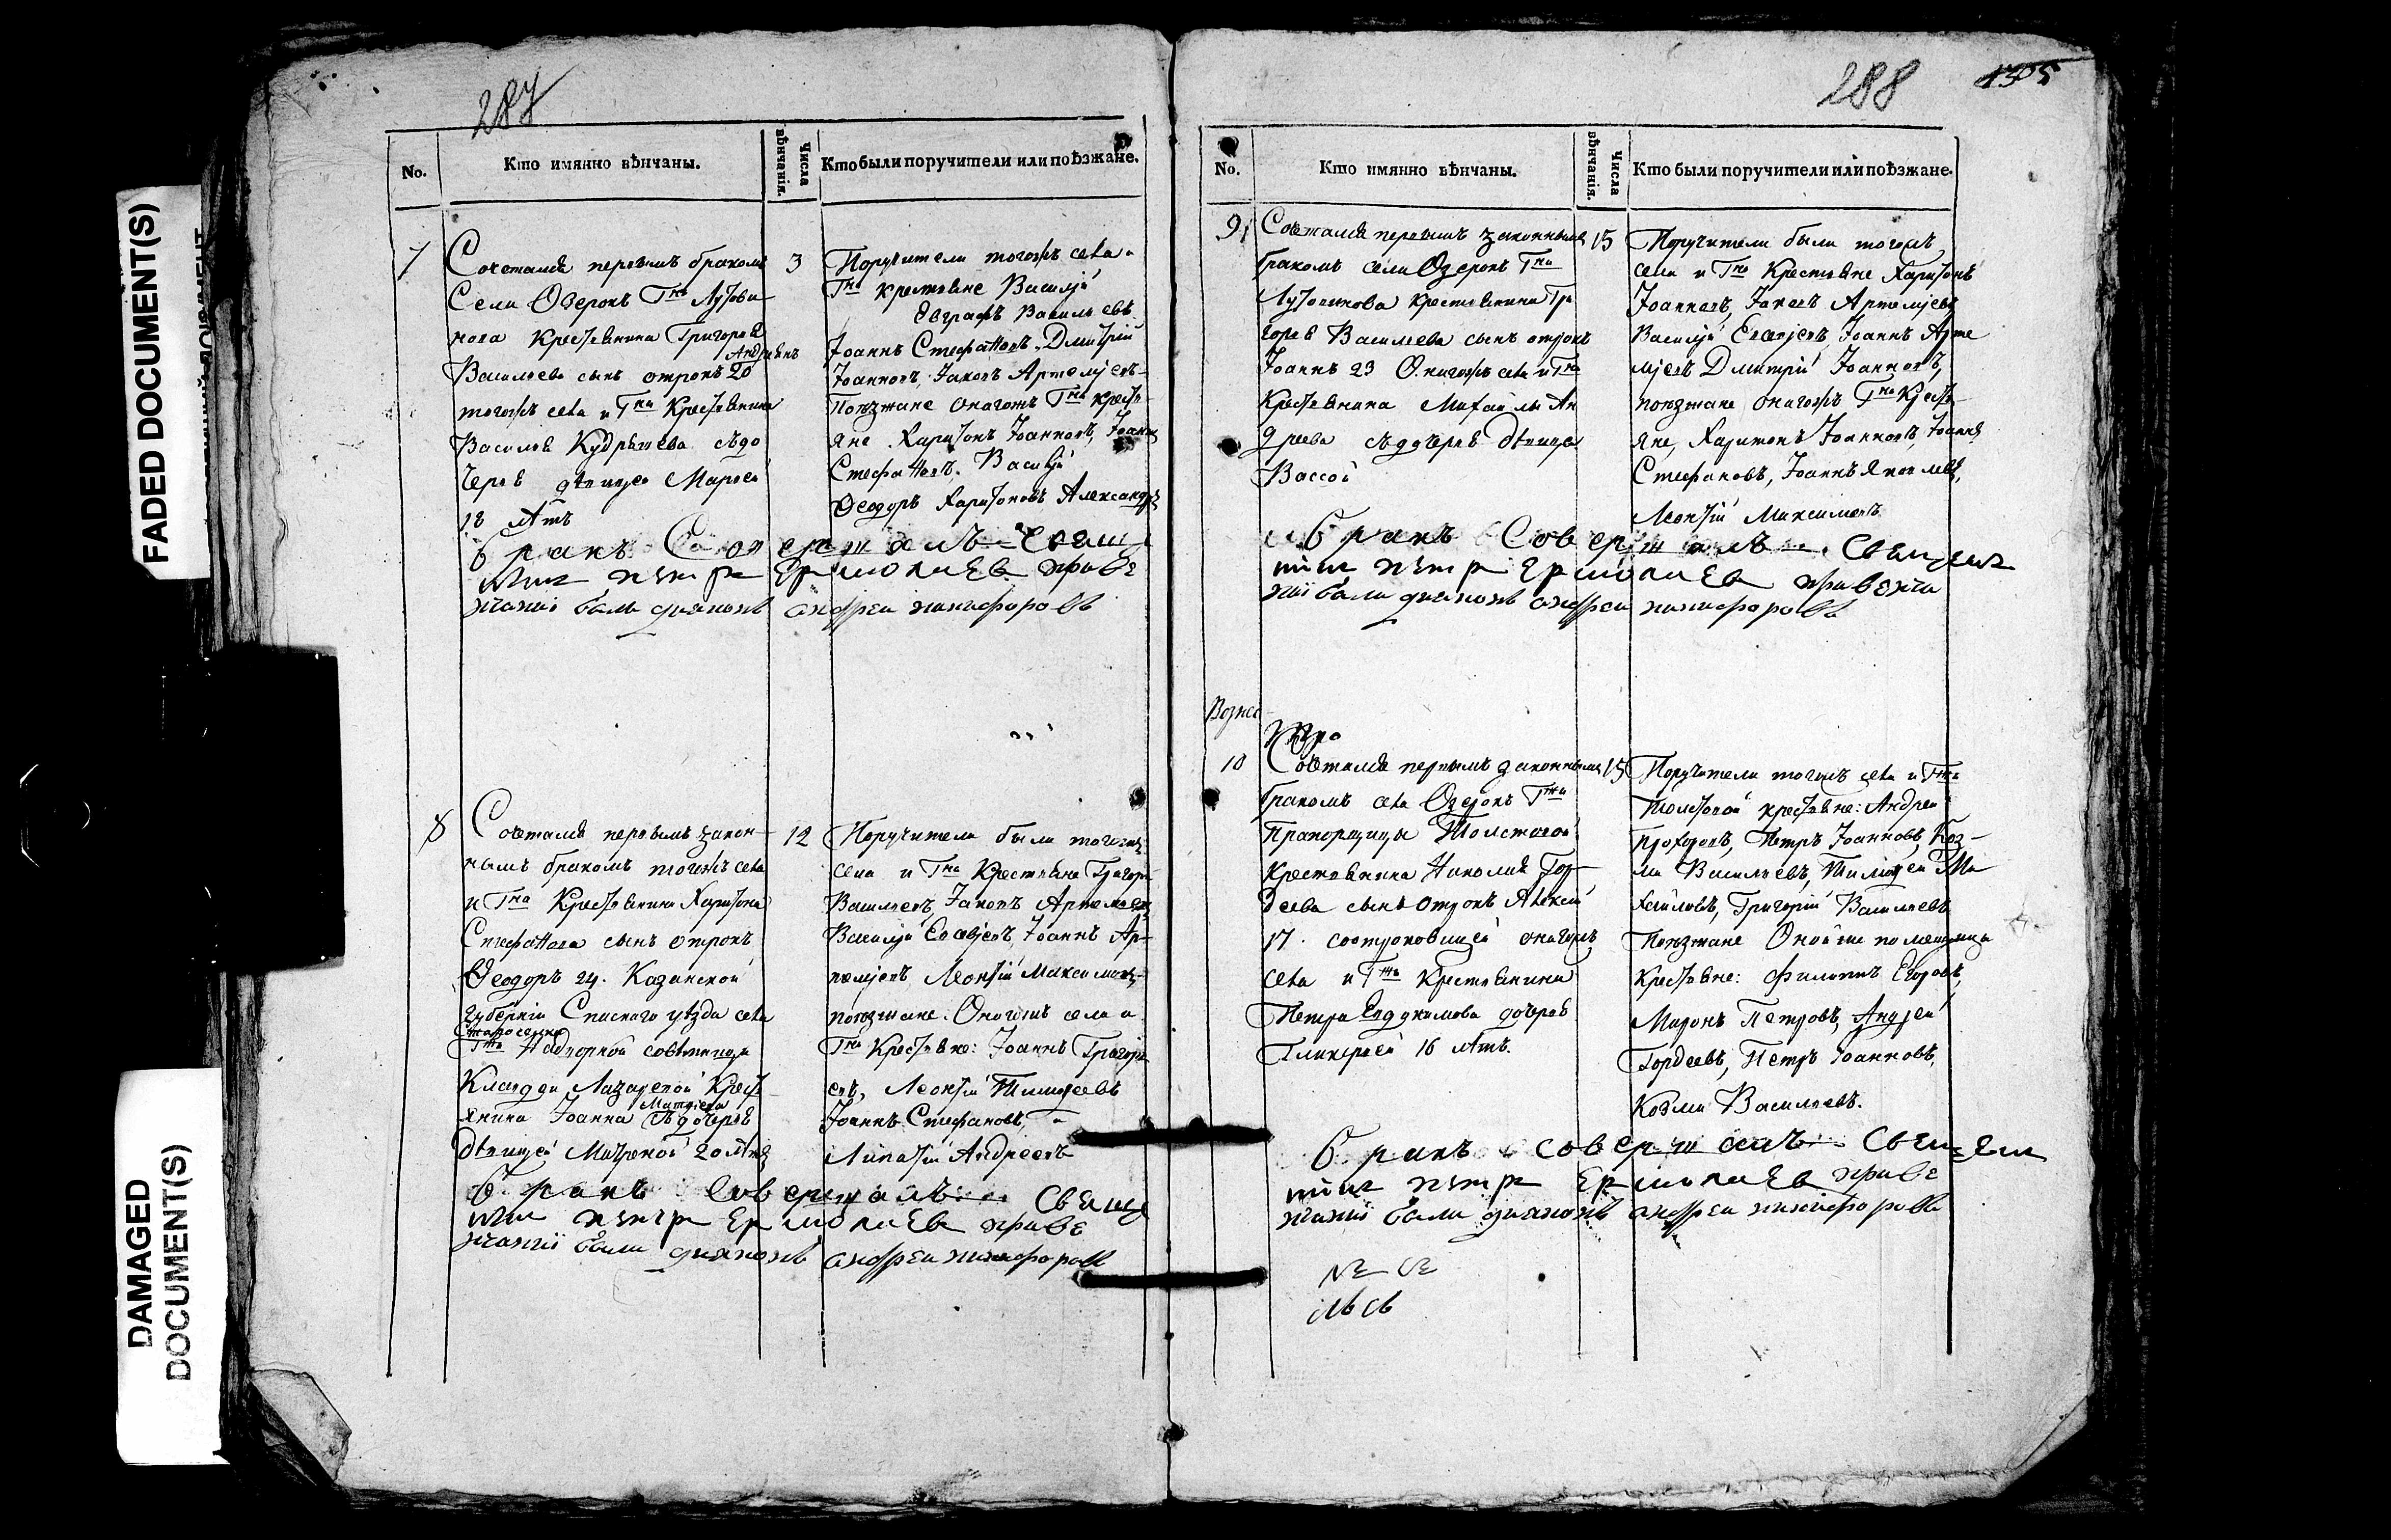 FADED DOCUMENT(S)
DAMAGED
DOCUMENT(S)
287
No.
Кто имянно вѣнчаны.
Числа
вѣнчанія.
Кто были поручители или поѣзжане.
7
Сочетался первымъ бракомъ
Села Озерокъ Гна Лутови-
нова Крестьянина Григорья
Андреянъ
Васильева сынъ отрокъ 20
тогожъ села и Гна Крестьянина
Василья Кудряшева съ до
черью девицею
18 лѣтъ
3
Поручители тогожъ села
Гна крестьяне Василій
Евграфъ Васильевъ
Іоаннъ Стефановъ, Дмитрій
Іоанновъ, Іаковъ Артемьевъ
Поѣзжане онагожъ Гна кресть-
яне Харитонъ Іоанновъ, Іоаннъ
Стефановъ, Василій
Ѳеодоръ Харитоновъ Александръ
бракъ Совершалъ Свящ
петр Ермолаев при ве
нчаніи были диаконъ андреи никифоровъ
8
Сочетался первымъ закон-
нымъ бракомъ тогожъ села
и Гна Крестьянина Харитона
Стефанова сынъ отрокъ
Ѳеодоръ 24. Казанской
губерніи Спаскаго уѣзда села
Гжи Надворной совѣтницы
Клавдіи Лазаревой Крест
янина Іоанна съ дочерью
Матвеева
девицей Матреной 20 лѣтъ
12
Поручители были тогожъ
села и Гна Крестьяне Григорій
Васильевъ, Іаковъ Артемьевъ
Василій Іоаннъ Ар-
темьевъ Леонтій Максимовъ
поѣзжане. Онагожъ села и
Гна Крестьяне: Іоаннъ Григорь
евъ, Леонтій Тимофеевъ
Іоаннъ Стефановъ,
Ипатій Андреевъ
бракъ Совершалъ Свяще
петр Ермолаев при ве
нчаніи были диаконъ андреи никифоровъ
288
1305
No.
Кто имянно вѣнчаны.
Числа
вѣнчанія.
Кто были поручители или поѣзжане.
9
Сочетался первымъ законнымъ
бракомъ села Озерокъ Гна
Лутовинова крестьянина Гри
горья Васильева сынъ отрокъ
Іоаннъ 23 Онагожъ села и Гна
Крестьянина Михайлы Ан
дреева съ дочерью девицею
Вассой
15
Поручители были тогожъ
села и Гна Крестьяне Харитонъ
Іоанновъ, Іаковъ Артемьевъ
Василій Іоаннъ Арте
мьевъ Дмитрій Іоанновъ,
поѣзжане онагожъ Гна Кресть-
яне, Харитонъ Іоанновъ, Іоаннъ
Стефановъ, Іоаннъ Яковлевъ,
Леонтій Максимовъ
бракъ Совершалъ Священ
ник петр Ермолаев при венча
нии были диаконъ андреи никифоровъ
10
Сочетался первымъ законнымъ
бракомъ села Озерокъ Гжи
Прапорщицы Толстовой
крестьянина Николая Гор-
деева сынъ отрокъ Алексей
17. сотроковицей онагожъ
села и Гжи Крестьянина
Петра Евдокимова дочерью
Гликерьей 16 лѣтъ.
15
Поручители тогожъ села и Гжи
Толстовой крестьяне: Андрей
Прохоровъ, Петръ Іоанновъ, Коз-
ма Васильевъ, Тимофей Ми
хайловъ, Григорій Васильевъ
Поѣзжане Онойже помещицы
Крестьяне: Филиппъ Егоровъ,
Миронъ Петровъ, Андрей
Гордеевъ, Петръ Іоанновъ,
Козма Васильевъ.
бракъ совершалъ Священ
ник петр Ермолаев при ве
нчаніи были диаконъ андреи никифоровъ